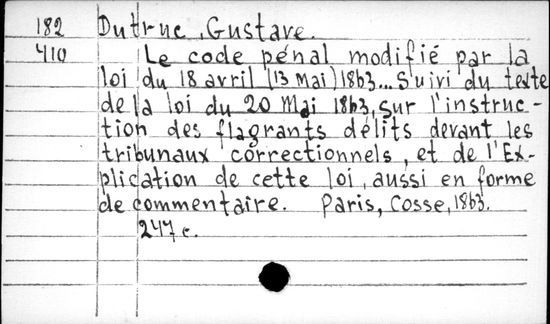 182 Dutruc, Gustave.
410 Le code pénal modifié par la
loi du 18 avril (13 mai) 1863... Suivi du texte
de la loi du 20 Mai 1863, sur l'instruc-
tion des flagrants délits devant les
tribunaux correctionnels, et de l'Ex-
plication de cette loi, aussi en forme
de commentaire. Paris, Cosse, 1863.
247 c.